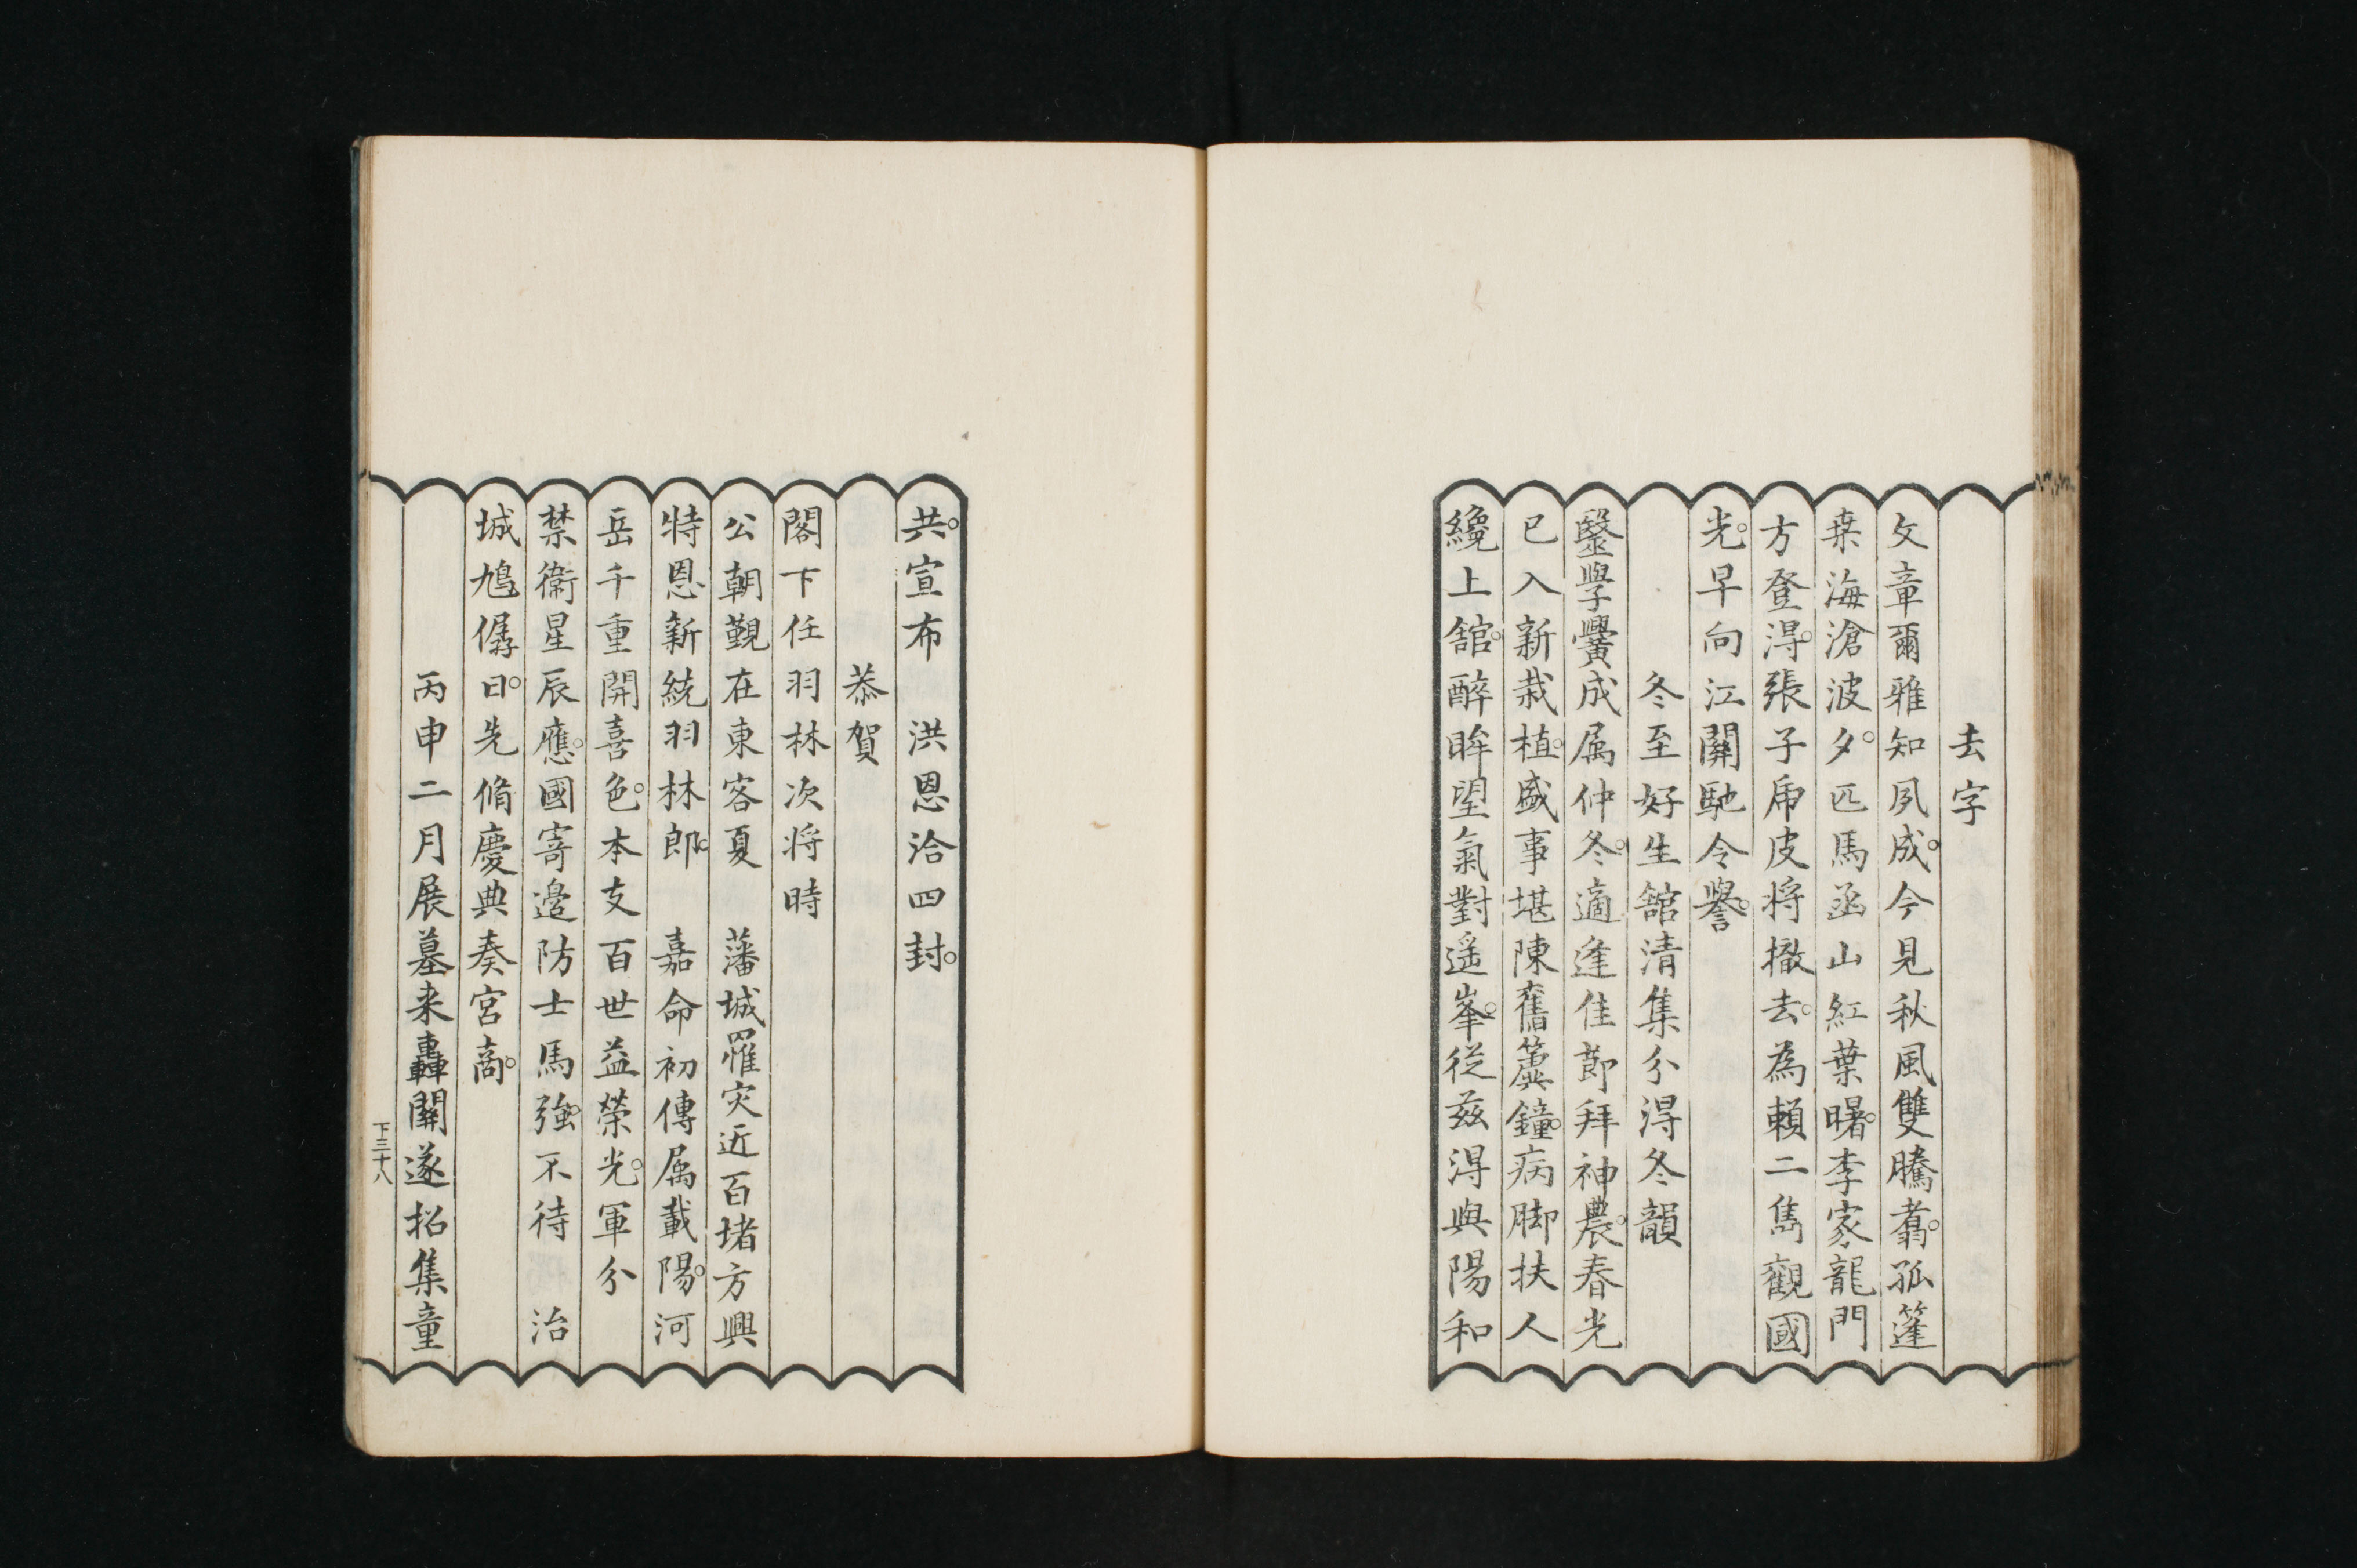 去字
文章爾雅知夙成。今見秋風雙騰翥。孤篷
桒海滄波夕。匹馬函山紅葉曙。李家龍門
方登得。張子虎皮将撤去。為賴二雋觀國
光。早向江關馳令譽。
冬至好生舘清集分得冬韻
醫學黌成属仲冬。適逢佳節拜神農。春光
已入新栽植。盛事堪陳舊簴鐘。病脚扶人
纔上舘。醉眸望氣對遥峯。從玆得與陽和
共。宣布 洪恩洽四封。
恭賀
閣下任羽林次将時
公朝覲在東客夏 藩城罹灾近百堵方興
特恩新統羽林郎。 嘉命初傳属載陽。河
岳千重開喜色。本支百世益榮光。軍分
禁衞星辰應。國寄邊防士馬強。不待 治
城鳩僝日。先脩慶典奏宮商。
丙申二月展墓来轟關遂招集童
下三十八